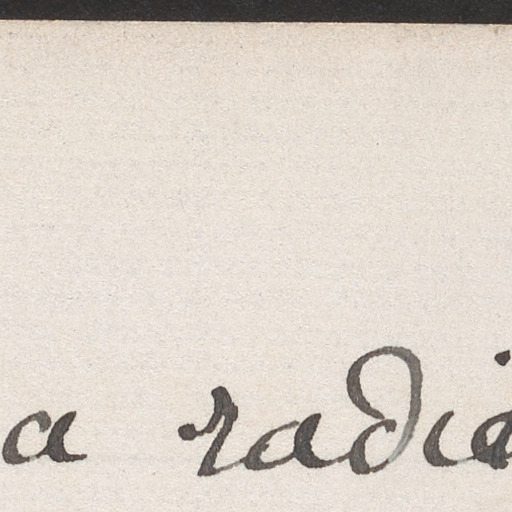 a radia